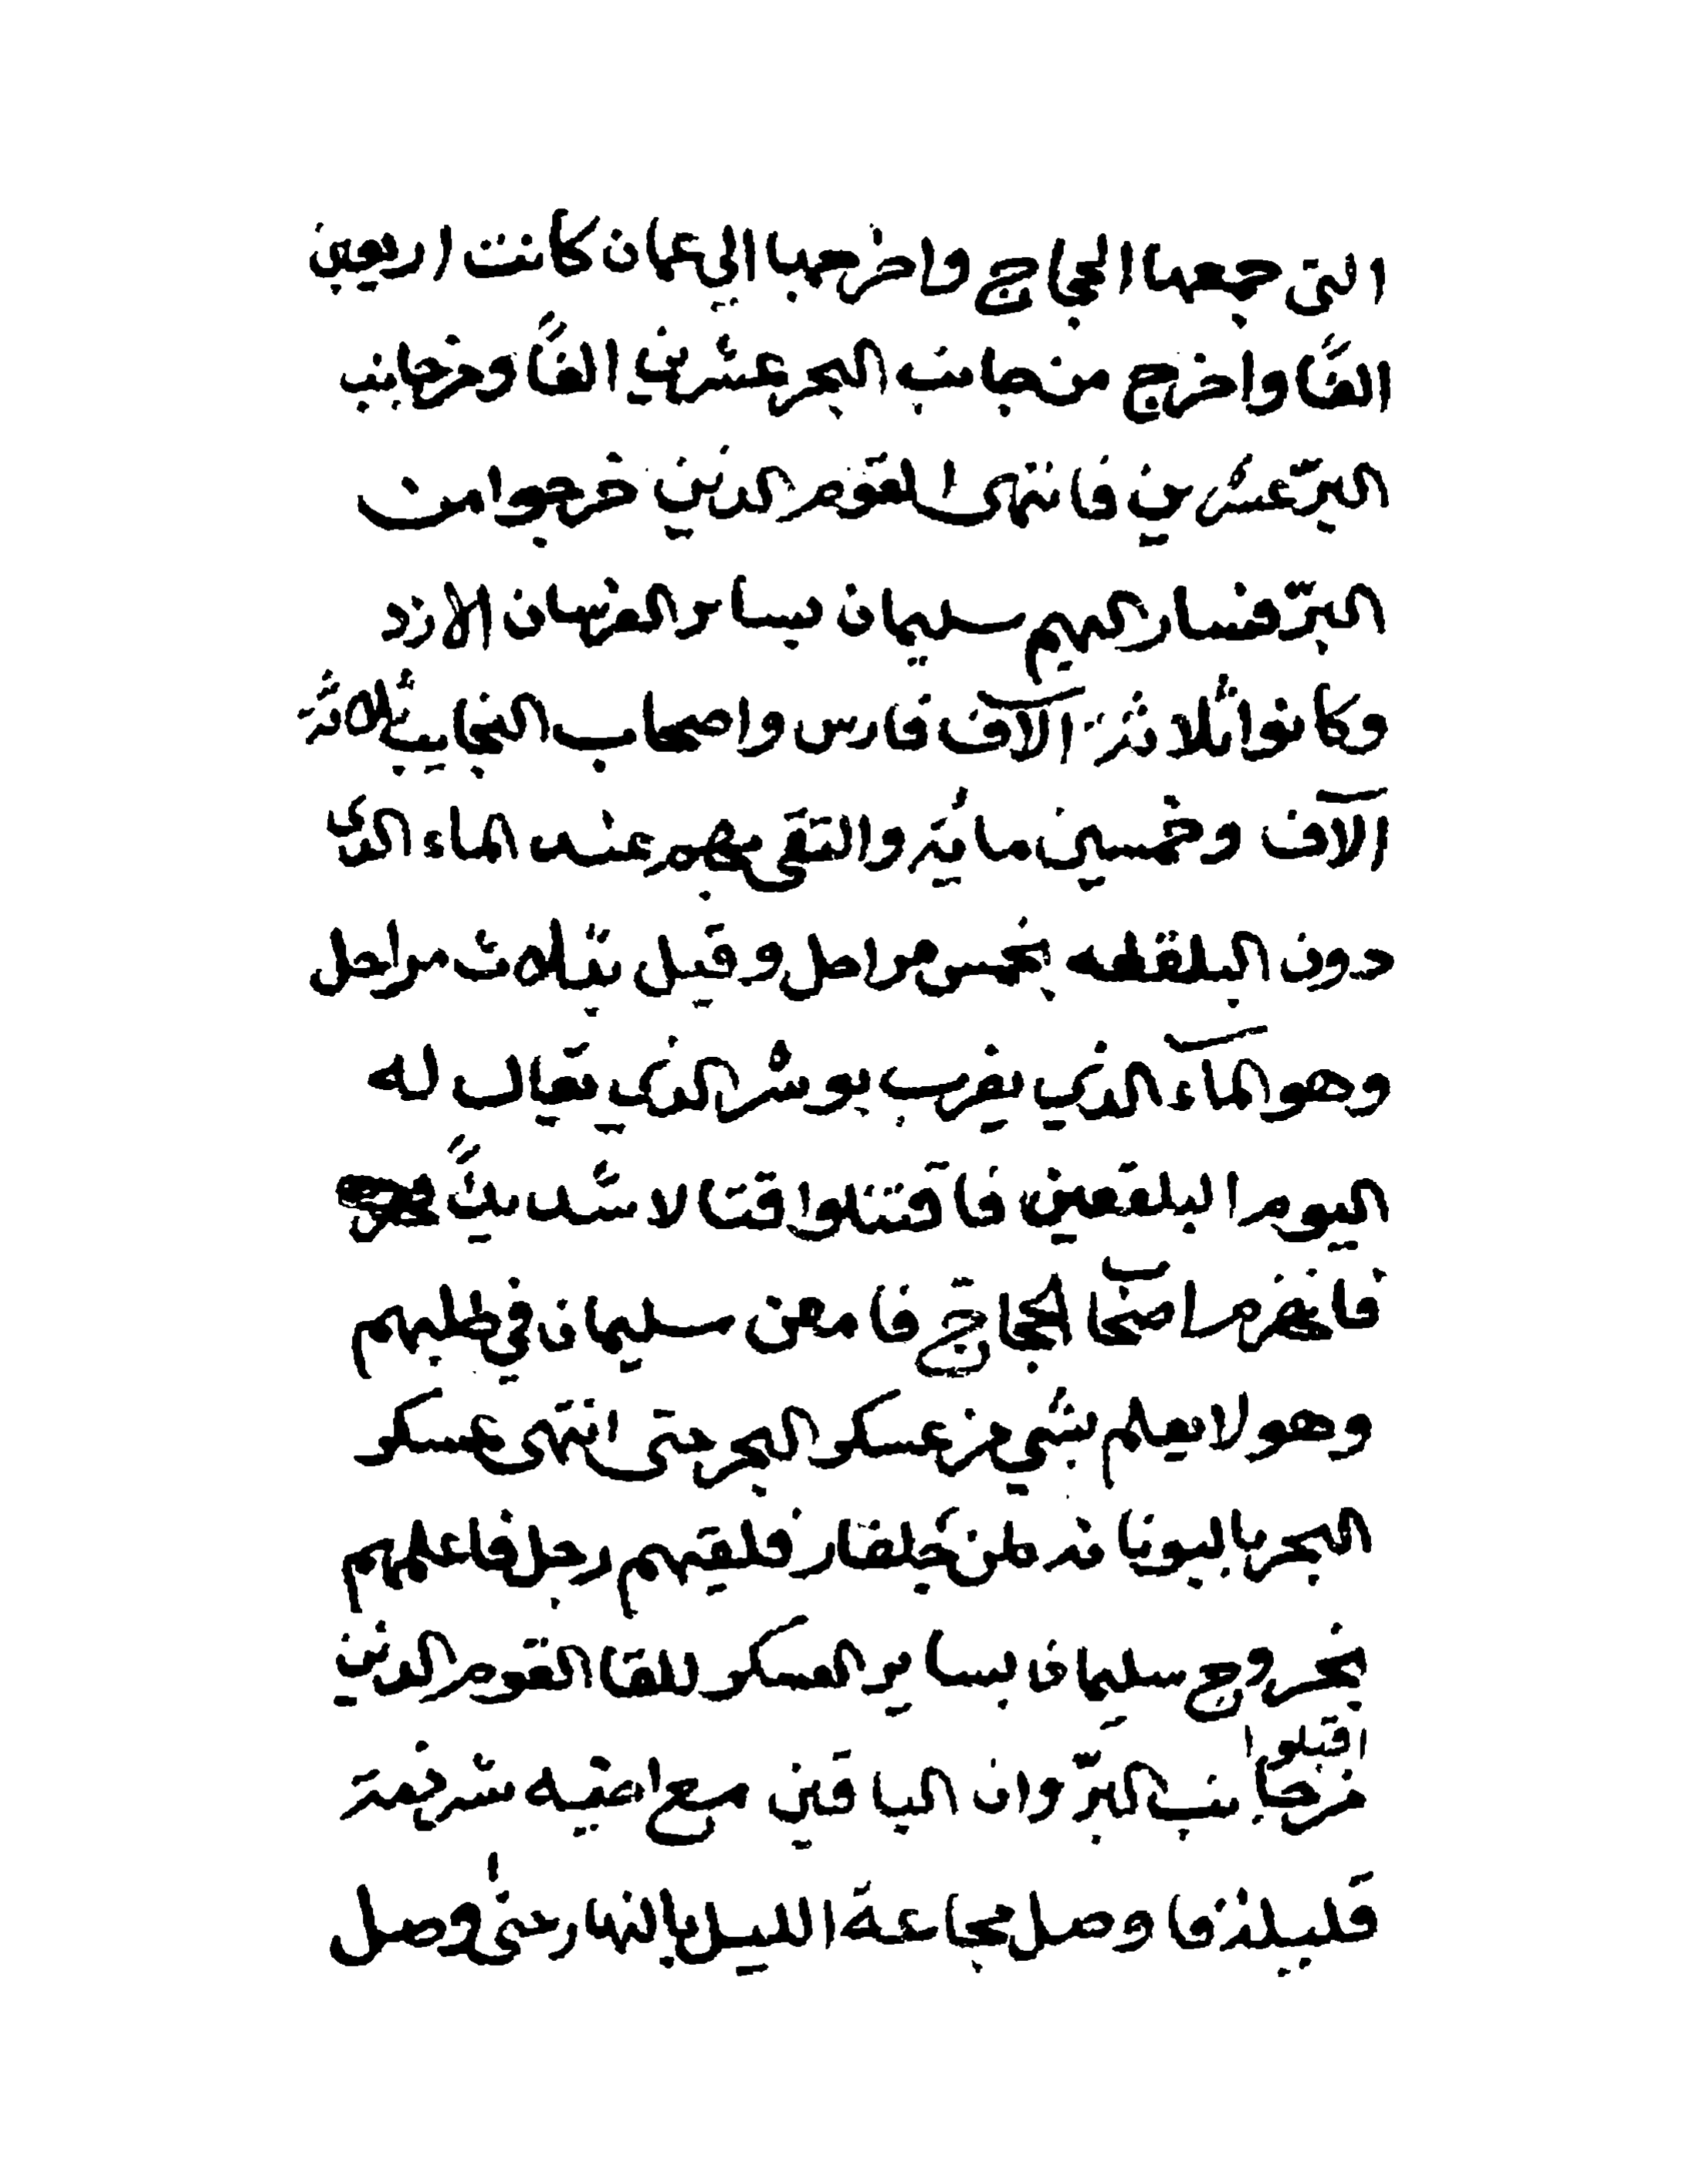 التى جمعها الحجاج واخرجها الي عمان كانت اربعين
الفًا واخرج من جانب البحر عشرين الفًا ومن جانب
البرّ عشرين فانتهى القوم الذين خرجوا من
البرّ فسار اليهم سليمان بساير الفرسان الازد
وكانوا ثلاثة آلآف فارس واصحاب النجايب ثلاثة
آلاف وخمسين مائية والتقى بهم عند الماء الذى
دون البلقطه بخمس مراحل وقيل بثلاث مراحل
وهو المآء الذي بقرب بوشر الذى يقال له
اليوم البلقعين فاقتتلوا قتالا شديدًا
فانهزم اصحاب الحجاج فامعن سليمان في طلبهم
وهو لا يعلم بشي من عسكر البحر حتى انتهى عسكر
البحر باليونانه من جلفار فلقيهم رجل فاعلمهم
بخروج سليمان بساير العسكر للقا القوم الذين
اقبلوا
من جانب البرّ وان الباقين مع اخيه شرذمة
قليلة فاوصل مجاعة الليل بالنهار حتى وصل